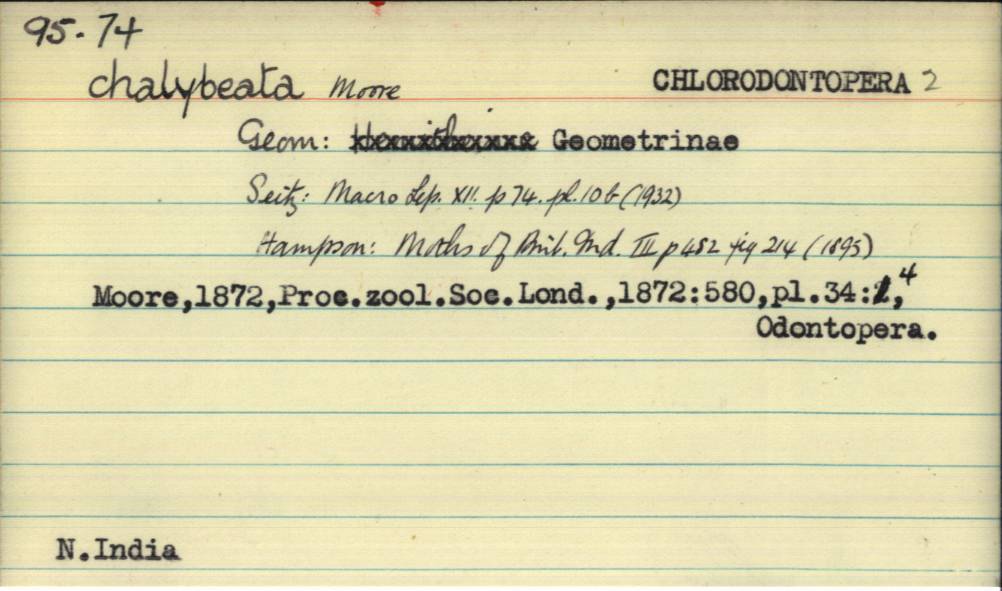 95-74
chalybeata Moore CHLORODONTOPERA 2
Geom: Geometrinae
Seitz: Macro Lep. XII. p 74. pl. 10 b (1932)
Hampson: Moths of Brit. Ind. III p 482 fig 214 (1895)
Moore,1872,Proc.zool.Soc.Lond.,1872:580,pl.34:4,
Odontopera.
N.India